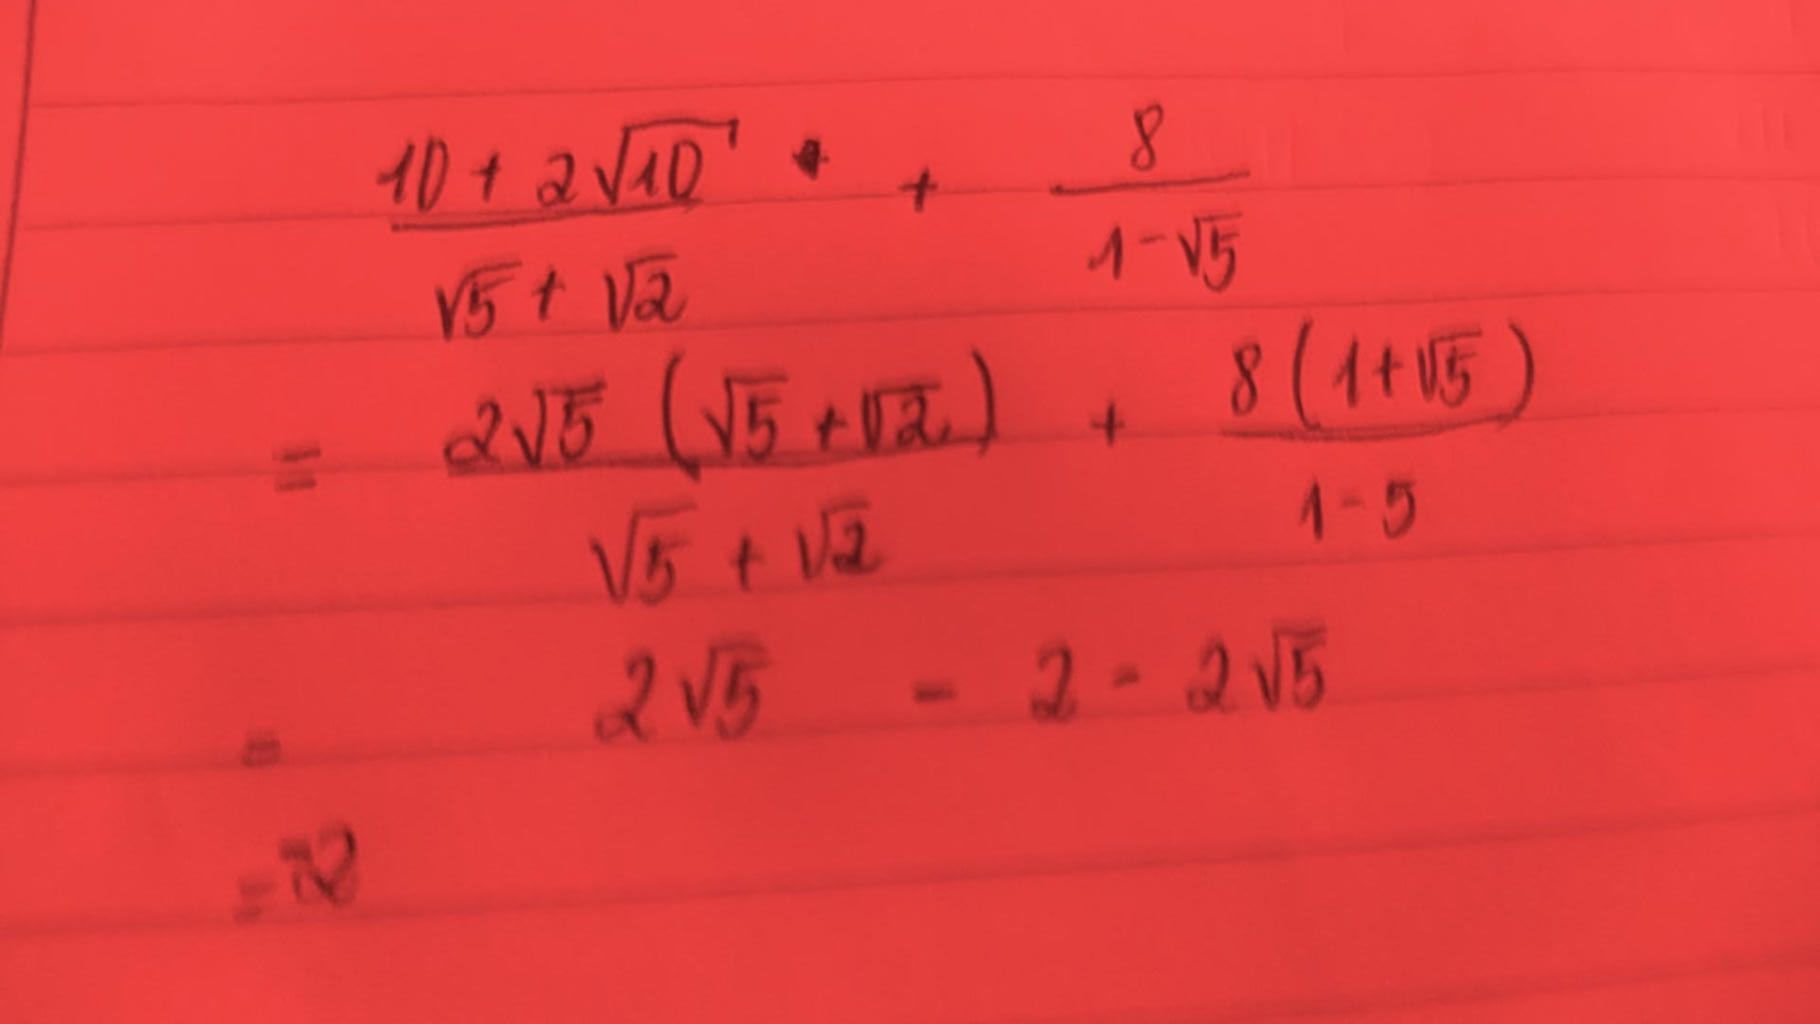 (10 + 2√10)/(√5 + √2) + 8/(1 - √5)
= 2√5 (√5 + √2)/(√5 + √2) + 8(1 + √5)/(1 - 5)
= 2√5 - 2 - 2√5
=